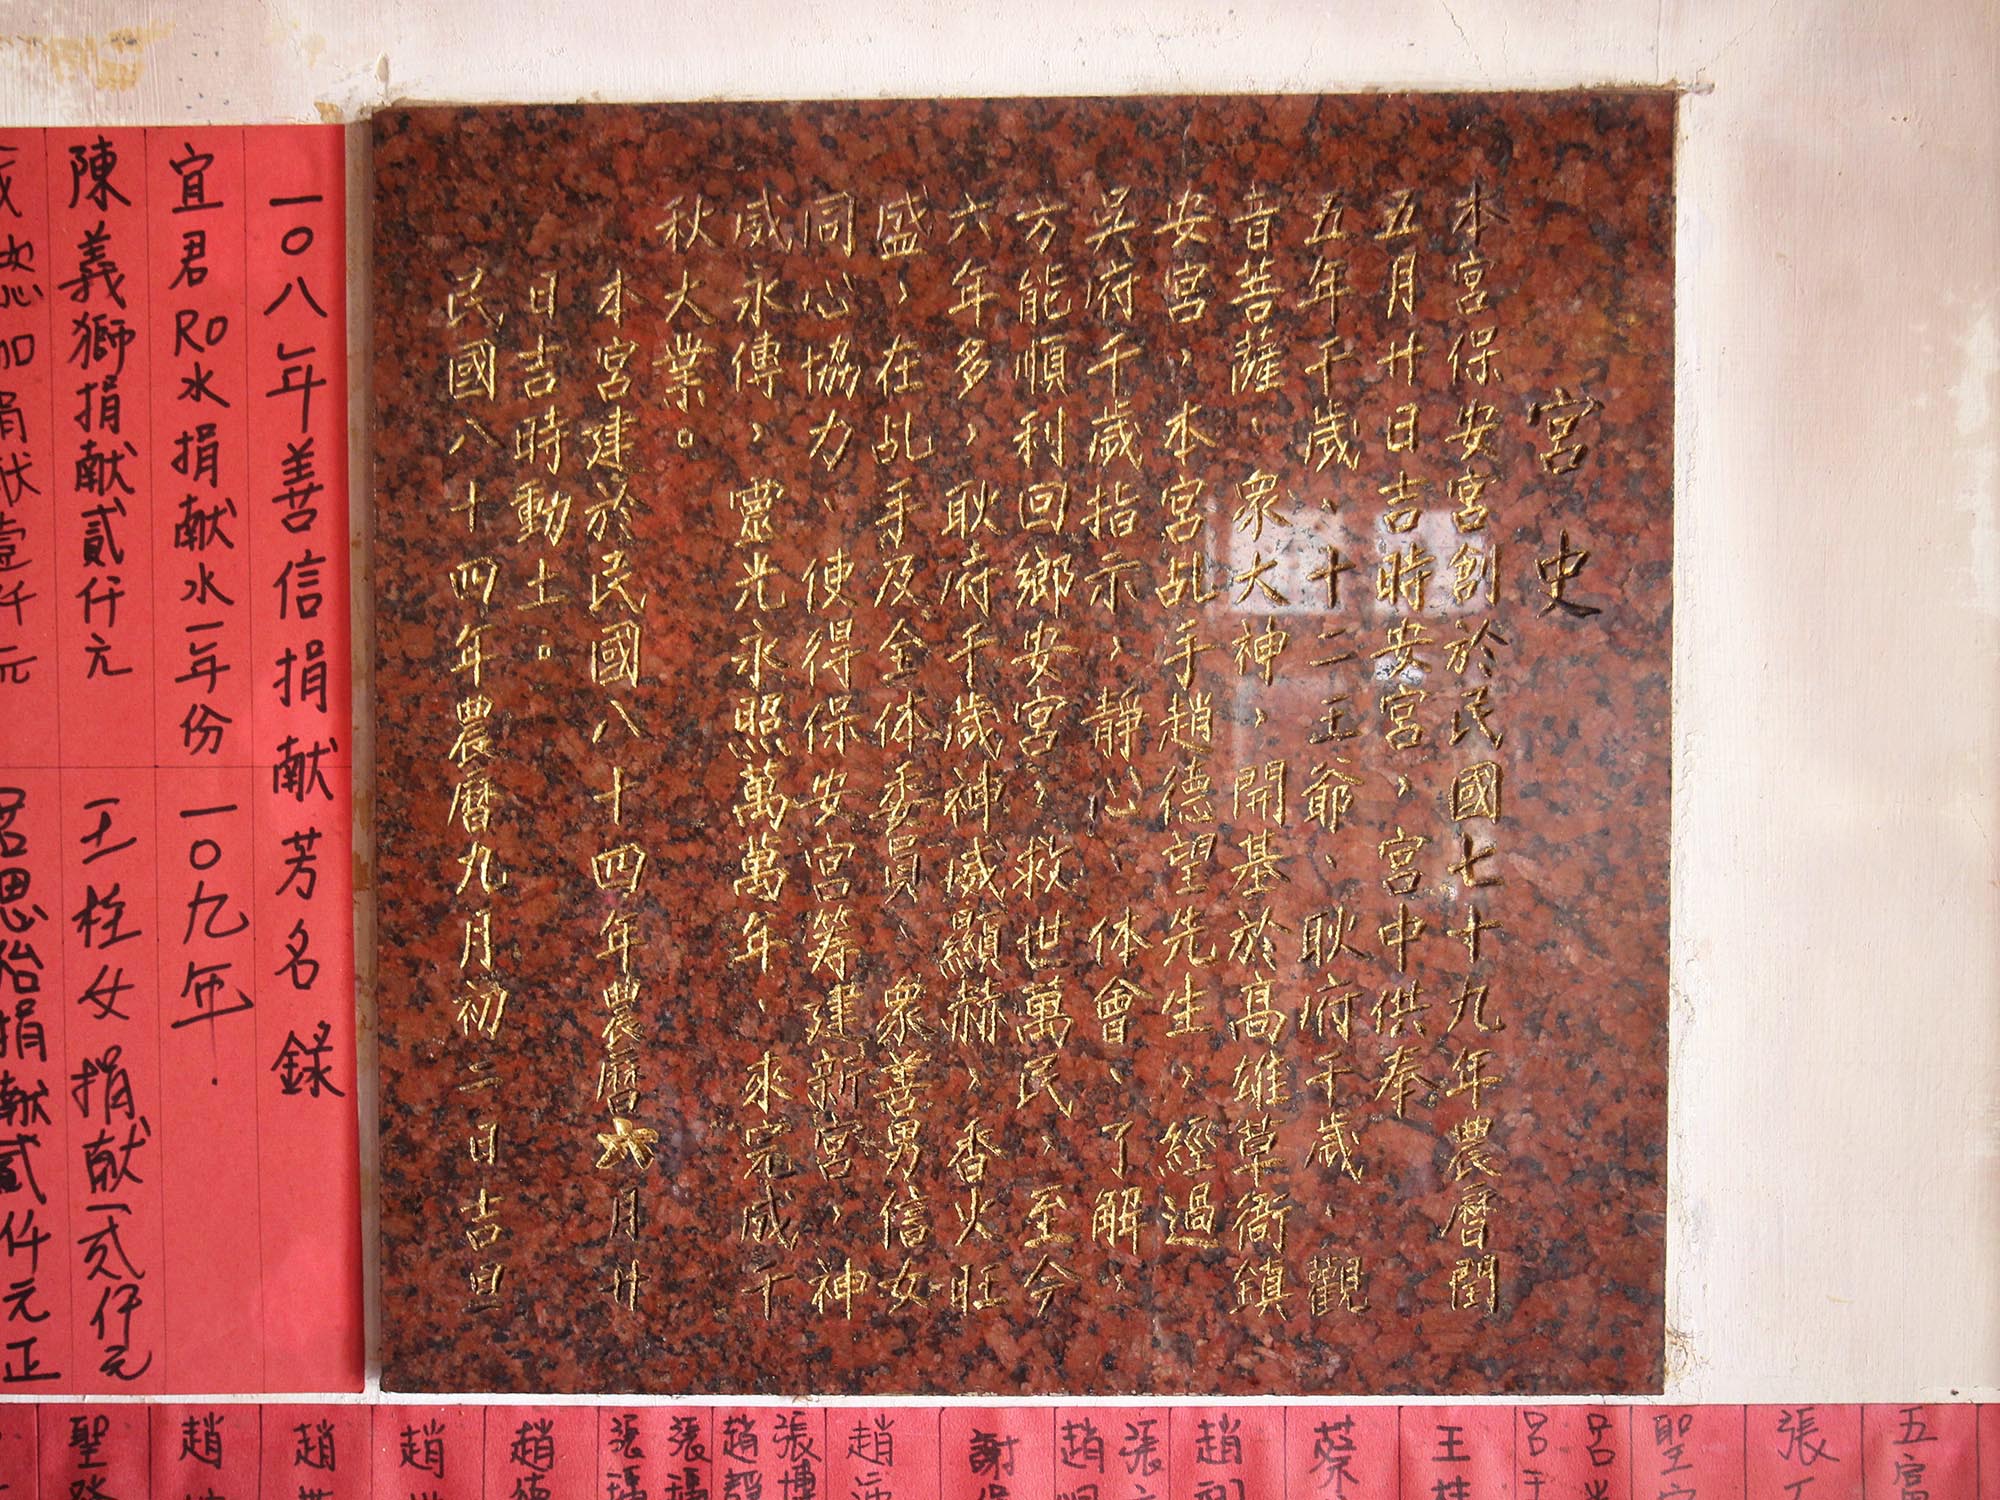 宮史
本宮保安宮創於民國七十九年農曆閏
五月廿日吉時安宮，宮中供奉
五年千歲、十二王爺、耿府千歲、觀
音菩薩、衆大神，開基於高雄草衙鎮
安宮，本宮乩手趙德望先生，經過
吳府千歲指示，靜心、体會、了解，
方能順利回鄉安宮，救世萬民，至今
六年多，耿府千歲神威顯赫，香火旺
盛，在乩手及全体委員、衆善男信女
同心協力、使得保安宮筹建新宮，神
威永傳，靈光永照萬萬年、來完成千
秋大業。
本宮建於民國八十四年農曆六月廿
日吉時動土。
民國八十四年農曆九月初二日吉旦
一〇八年善信捐献芳名錄
宜君RO水捐献水一年份
一〇九年
陳義獅捐献貳仟元
王栓女捐献貳仟元
加捐献壹仟元
思怡捐献貳仟元正
五富
張
聖
呂
呂
王桂
蔡
趙
張
趙
謝
趙
張博
趙靜
張
張
趙德
趙
趙
趙
聖